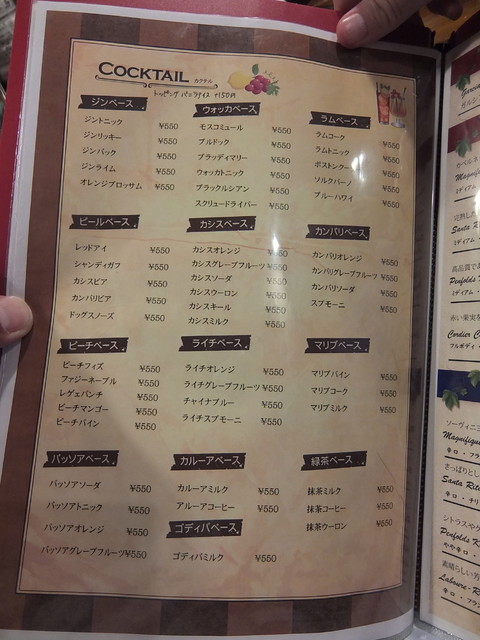 COCKTAIL カクテル
トッピング バニラアイス +150円
ジンベース
ジントニック ¥550
ジンリッキー ¥550
ジンバック ¥550
ジンライム ¥550
オレンジブロッサム ¥550
ウォッカベース
モスコミュール ¥550
ブルドック ¥550
ブラッディマリー ¥550
ウォッカトニック ¥550
ブラックルシアン ¥550
スクリュードライバー ¥550
ラムベース
ラムコーク ¥550
ラムトニック ¥550
ボストンクーラー ¥550
ソルクバーノ ¥550
ブルーハワイ ¥550
ビールベース
レッドアイ ¥550
シャンディガフ ¥550
カシスビア ¥550
カンパリビア ¥550
ドッグスノーズ ¥550
カシスベース
カシスオレンジ ¥550
カシスグレープフルーツ ¥550
カシスソーダ ¥550
カシスウーロン ¥550
カシスキール ¥550
カシスミルク ¥550
カンパリベース
カンパリオレンジ ¥550
カンパリグレープフルーツ ¥550
カンパリソーダ ¥550
スプモーニ ¥550
ピーチベース
ピーチフィズ ¥550
ファジーネーブル ¥550
レゲェパンチ ¥550
ピーチマンゴー ¥550
ピーチパイン ¥550
ライチベース
ライチオレンジ ¥550
ライチグレープフルーツ ¥550
チャイナブルー ¥550
ライチスプモーニ ¥550
マリブベース
マリブパイン ¥550
マリブコーク ¥550
マリブミルク ¥550
パッソアベース
パッソアソーダ ¥550
パッソアトニック ¥550
パッソアオレンジ ¥550
パッソアグレープフルーツ ¥550
カルーアベース
カルーアミルク ¥550
アルーアコーヒー ¥550
ゴディバベース
ゴディバミルク ¥550
緑茶ベース
抹茶ミルク ¥550
抹茶コーヒー ¥550
抹茶ウーロン ¥550
カベルネ
Magnifi
ミディアム
完熟した
Santa R
ミディアム・
高品質で
Penfolds
ミディアム・
赤い果実
Cordier C
フルボディ・
ソーヴィニ
Magnifiqu
辛口・フラ
さっぱりとし
Santa Rit
辛口・チリ
シトラスや
Penfolds K
やや辛口・
素晴らしい
Laboure-R
辛口・フラン